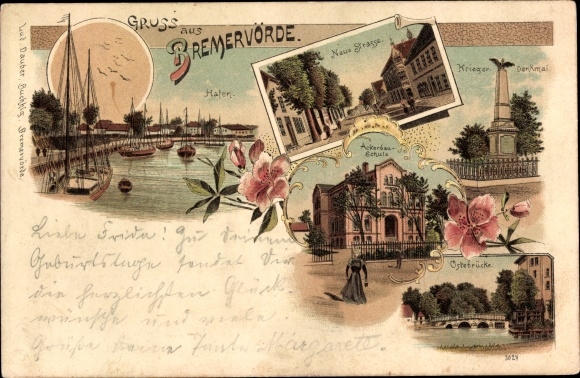 GRUSS aus
BREMERVÖRDE.
Hafen.
Neue Strasse.
Krieger-Denkmal
Ackerbau-
Schule
Ostebrücke.
Lud. Dauber, Buchhlg. Bremervörde.
Liebe Frida! Zu Deinem
Geburtstage sendet Dir
die herzlichsten Glück-
wünsche und viele
Grüße Deine Tante Margarete.
3024